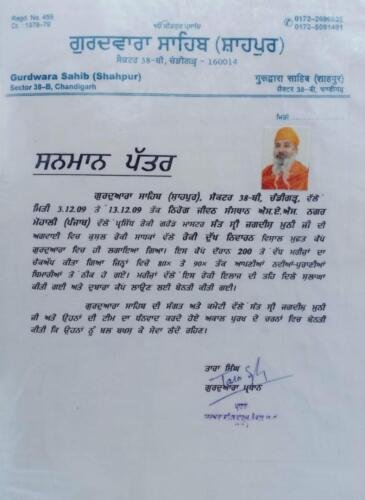 Regd. No. 455
Cc. : 1978-79
੧ਓ ਸਤਿਗੁਰ ਪ੍ਰਸਾਦਿ
ਗੁਰਦਵਾਰਾ ਸਾਹਿਬ (ਸ਼ਾਹਪੁਰ)
ਸੈਕਟਰ 38-ਬੀ, ਚੰਡੀਗੜ੍ਹ - 160014
Gurdwara Sahib (Shahpur)
Sector 38-B, Chandigarh
ਗੁਰੂਦਵਾਰਾ ਸਾਹਿਬ (ਸ਼ਾਹਪੁਰ)
ਸੈਕਟਰ 38-ਬੀ, ਚੰਡੀਗੜ੍ਹ
ਮਿਤੀ
ਸਨਮਾਨ ਪੱਤਰ
ਗੁਰਦੁਆਰਾ ਸਾਹਿਬ (ਸ਼ਾਹਪੁਰ), ਸੈਕਟਰ 38-ਬੀ, ਚੰਡੀਗੜ੍ਹ, ਵੱਲੋਂ
ਮਿਤੀ 3.12.09 ਤੋਂ 13.12.09 ਤੱਕ ਨਿਰੋਗ ਜੀਵਨ ਸੰਸਥਾਨ ਐਸ.ਏ.ਐਸ. ਨਗਰ
ਮੋਹਾਲੀ (ਪੰਜਾਬ) ਵੱਲੋਂ ਪ੍ਰਸਿੱਧ ਰੇਕੀ ਗਰੈਂਡ ਮਾਸਟਰ ਸੰਤ ਸ੍ਰੀ ਜਗਦੀਸ਼ ਮੁਨੀ ਜੀ ਦੀ
ਅਗਵਾਈ ਵਿਚ ਕੁਸ਼ਲ ਰੇਕੀ ਸਾਧਕਾਂ ਵੱਲੋਂ ਰੇਕੀ ਦੁੱਖ ਨਿਵਾਰਨ ਵਿਸ਼ਾਲ ਮੁਫ਼ਤ ਕੈਂਪ
ਗੁਰਦੁਆਰਾ ਵਿਚ ਹੀ ਲਗਾਇਆ ਗਿਆ। ਇਸ ਕੈਂਪ ਦੌਰਾਨ 200 ਤੋਂ ਵੱਧ ਮਰੀਜ਼ਾਂ ਦਾ
ਚੈਕਅੱਪ ਕੀਤਾ ਗਿਆ ਜਿਨ੍ਹਾਂ ਵਿਚੋਂ 80% ਤੋਂ 90% ਤੱਕ ਆਪਣੀਆਂ ਨਵੀਆਂ-ਪੁਰਾਣੀਆਂ
ਬਿਮਾਰੀਆਂ ਤੋਂ ਠੀਕ ਹੋ ਗਏ। ਮਰੀਜ਼ਾਂ ਵੱਲੋਂ ਇਸ ਰੇਕੀ ਇਲਾਜ ਦੀ ਤਹਿ ਦਿਲੋਂ ਸ਼ਲਾਘਾ
ਕੀਤੀ ਗਈ ਅਤੇ ਦੁਬਾਰਾ ਕੈਂਪ ਲਾਉਣ ਲਈ ਬੇਨਤੀ ਕੀਤੀ ਗਈ।
ਗੁਰਦੁਆਰਾ ਸਾਹਿਬ ਦੀ ਸੰਗਤ ਅਤੇ ਕਮੇਟੀ ਵੱਲੋਂ ਸੰਤ ਸ੍ਰੀ ਜਗਦੀਸ਼ ਮੁਨੀ
ਜੀ ਅਤੇ ਉਹਨਾਂ ਦੀ ਟੀਮ ਦਾ ਧੰਨਵਾਦ ਕਰਦੇ ਹੋਏ ਅਕਾਲ ਪੁਰਖ ਦੇ ਚਰਨਾਂ ਵਿਚ ਬੇਨਤੀ
ਕੀਤੀ ਕਿ ਉਹਨਾਂ ਨੂੰ ਬਲ ਬਖਸ਼ ਕੇ ਸੇਵਾ ਲੈਂਦੇ ਰਹਿਣ।
ਤਾਰਾ ਸਿੰਘ
ਗੁਰਦੁਆਰਾ ਪ੍ਰਧਾਨ
ਪ੍ਰਧਾਨ